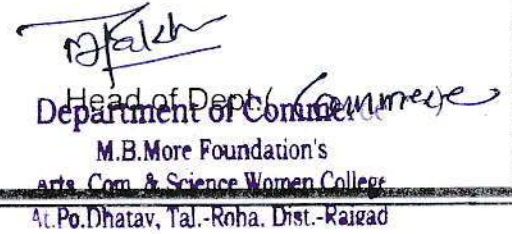 Head of Dept./ Commerce
Department of Commerce
M.B.More Foundation's
Arts, Com. & Science Women College
At.Po.Dhatav, Tal.-Roha. Dist.-Raigad